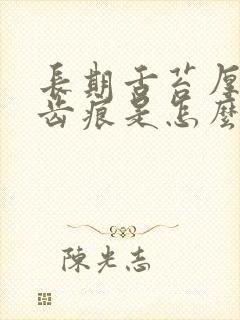 長期舌苔厚
齒痕是怎麼
陳光志